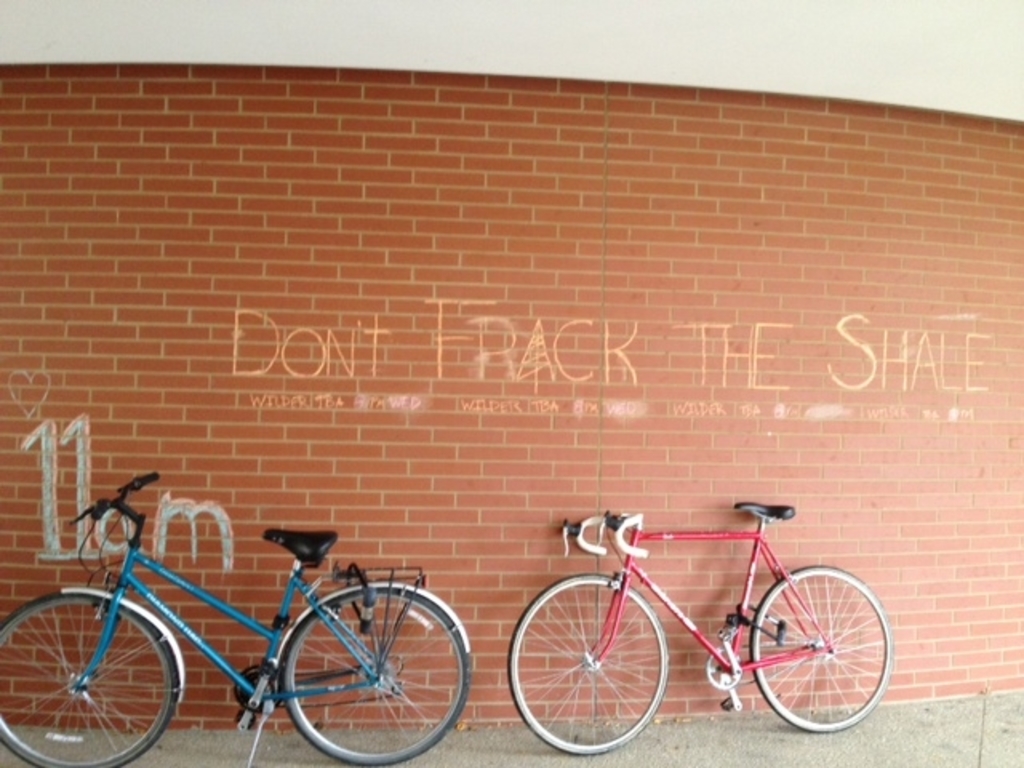 DON'T FRACK THE SHALE
WILDER TBA 8PM WED WILDER TBA 8PM WED WILDER TBA 8PM WILDER TBA 8PM
11am